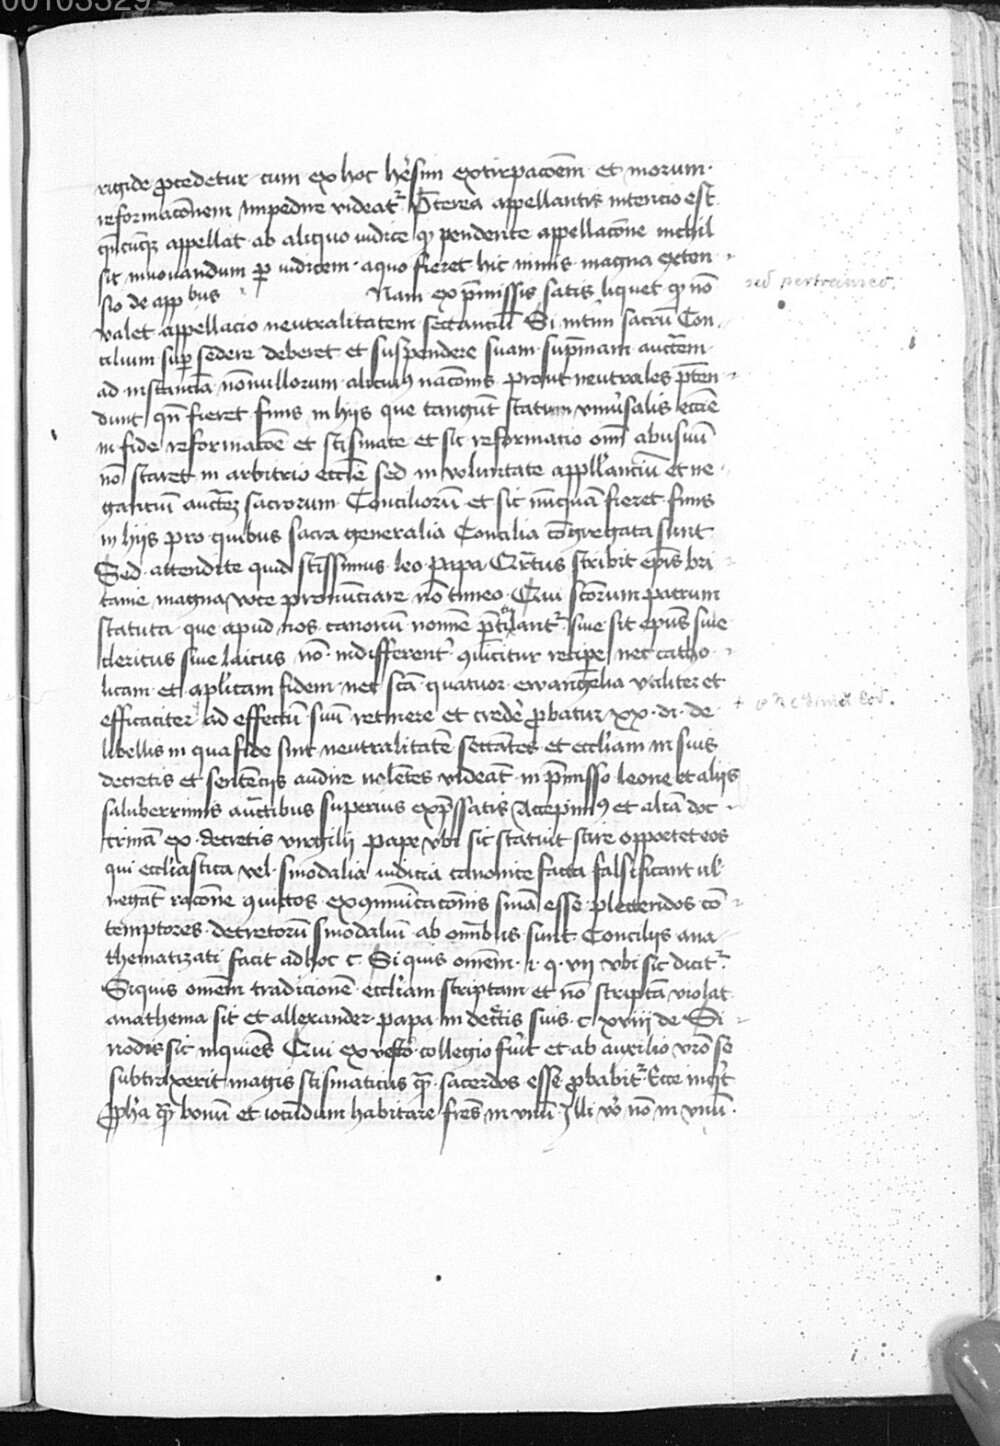 00103329
rigide ꝓcedetur cum ex hoc hesim extirpacoēm et morum
reformacōnem impedire videat᷑ P̄terea appellantis intencio est
qn̄cūqꝫ appellat ab aliquo iudice qꝫ pendente appellacōne nichil
sit innouandum ꝑ iudicem a quo fieret hic nimis magna exten
sio de app bus Nam ex p̄missis satis liquet qꝫ nō
sed pertranseo.
valet appellacio neutralitatem sectanciū Si nīm sacrū Con
cilium suꝑ sedere deberet et suspendere suam sup̄mam auctēm
ad instanciā nōnullorum alicuiꝰ nacōnis prout neutrales p̄ten
dunt qn̄ fieret finis in hijs que tangūt statum vniūsalis ecc̄ie
in fide reformacōe et scismate et sic reformatio om̄ abusuū
nō staret in arbitrio ecc̄ie sed in voluntate appellanciū et ne
ganciū auctēꝫ sacrorum Conciliorū et sic nūquā fieret finis
in hijs pro quibus sacra generalia Concilia cōgregata sunt
Sed attendite quid sc̄issimus leo papa Qr̄tus scribit ep̄is bri
tanie magna voce pronūnciare nō timeo Qui sc̄orum patrum
statuta que apud nos canonū nomine p̄tilant᷑ siue sit ep̄us siue
clericus siue laicus nō indifferent᷑ 9uīcitur recipe nec catho
licam et apl̄icam fidem nec sc̄a quatuor ewangelia vtiliter et
efficaciter ad effectū suū retinere et crede ꝓbatur xx. di. de
libellis in qua fide sint neutralitatē sectātes et eccl̄iam in suis
decretis et sentencijs audire nolētes videāt in p̄misso leone et alijs
saluberrimis auctibus superius exp̄ssatis Accepimꝰ et aliā doc
trinā ex decretis virgilij pape vbi sic statuit scire oportet eos
qui eccl̄iastica vel sinodalia iudicia canonice facta falsificant ul̄
negāt racōne 9uictos exꝯmunicacōnis sniā esse plectendos cō
temptores decretorū sinodaliū ab om̄ibus sunt Concilijs ana
thematizati facit ad hoc c. Si quis omēm . i. q. vij vbi sic dicit᷑
Si quis omēm tradicionē eccl̄iam scriptam et nō scriptā violat
anathema sit et allexander papa in decr̄tis suis c. xviij de Si
nodis sic inquiēs Qui ex vestro collegio fu̾it et ab auxilio vr̄o se
subtraxerit magis scismaticus qm̄ sacerdos esse ꝓbabit᷑ Ecce inq̄t
ꝓph̄a qm̄ bonū et iocundum habitare fr̄es in vnū Illi vo̾ nō in vnū